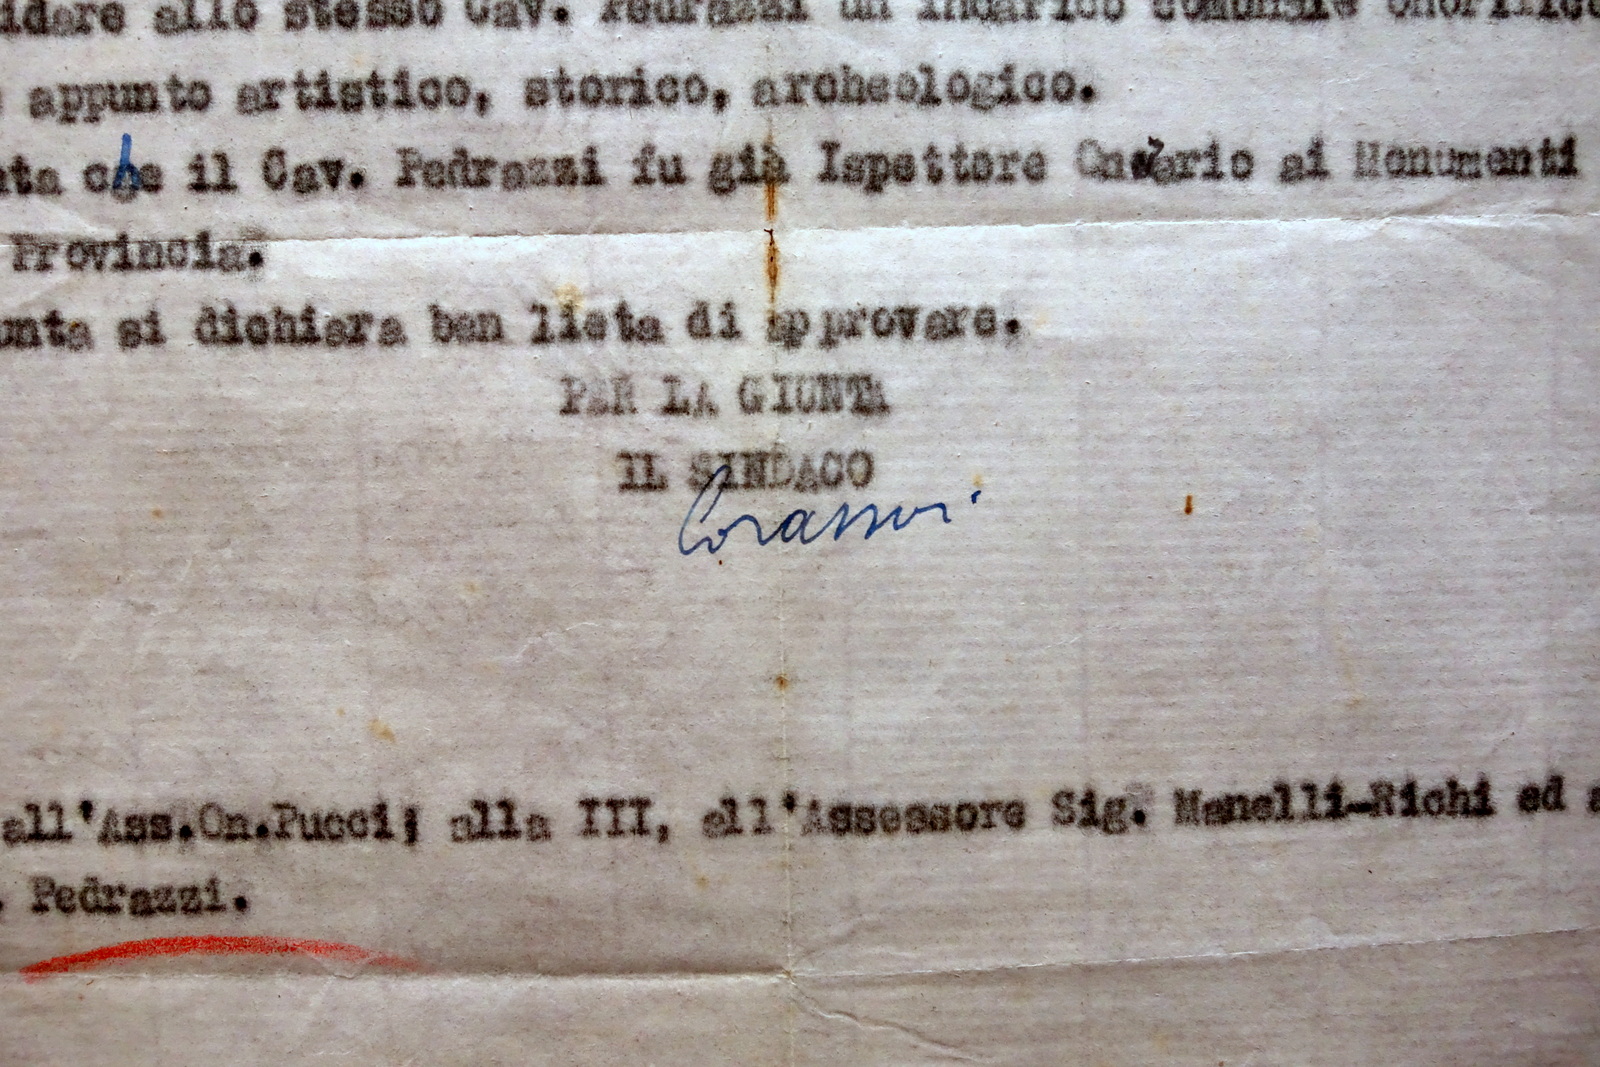 idare allo stesso Cav. Pedrazzi un incarico comunale onorifico
appunto artistico, storico, archeologico.
nta che il Cav. Pedrazzi fu già Ispettore Onorario ai Monumenti
Provincia.
unta si dichiara ben lieta di approvare.
PER LA GIUNTA
IL SINDACO
Corassori
all'Ass.On.Pucci; alla III, all'Assessore Sig. Manelli-Richi ed a
. Pedrazzi.